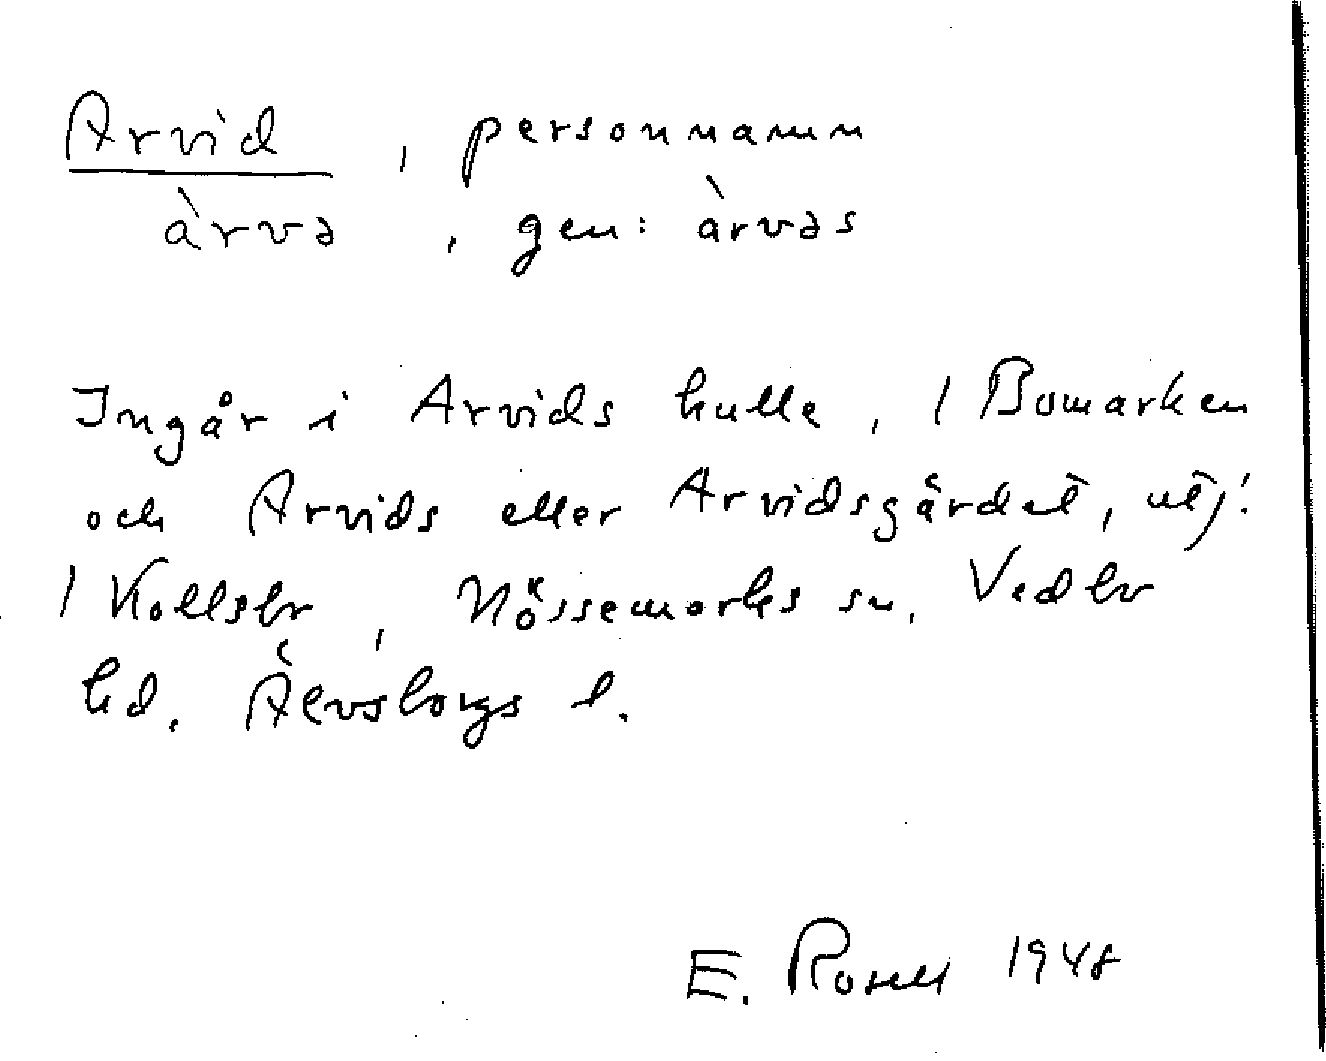 Arvid, personnamn
àrvə, gen: àrvəs
Ingår i Arvids kulle, / Bomarken
och Arvids eller Arvidsgärdet, utj.
/ Kollsbr, Nössemarks sn. Vedbr
hd. Älvsborgs l.
E. Rosell 1948